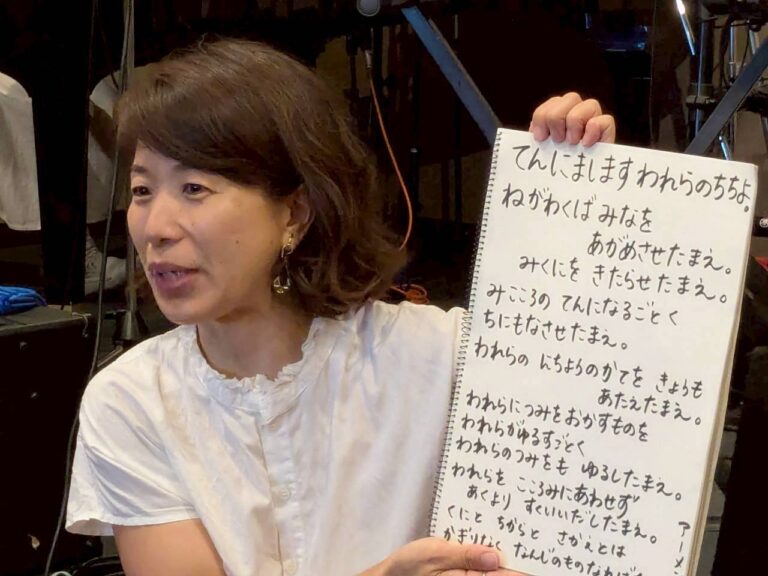 てんにまします われらのちちよ。
ねがわくば みなを
あがめさせたまえ。
みくにを きたらせたまえ。
みこころの てんになるごとく
ちにもなさせたまえ。
われらの にちようのかてを きょうも
あたえたまえ。
われらにつみをおかすものを
われらがゆるすごとく
われらのつみをも ゆるしたまえ。
われらを こころみにあわせず
あくより すくいいだしたまえ。
くにと ちからと さかえとは
かぎりなく なんじのものなれば
アーメン